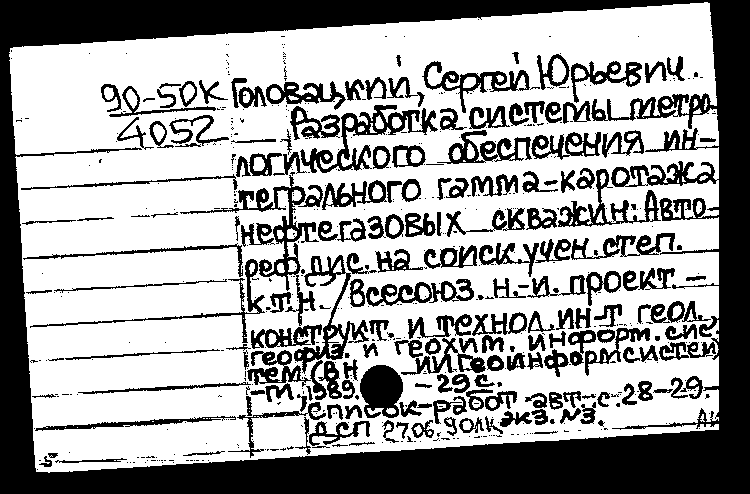 90-5DK Головацкий, Сергей Юрьевич.
4052 Разработка системы метро-
логического обеспечения ин-
тегрального гамма-каротажа
нефтегазовых скважин: Авто-
реф. дис. на соиск. учен. степ.
к.т.н. Всесоюз. н.-и. проект.-
конструкт. и технол. ин-т геол.,
геофиз. и геохим. информ. сис.
тем (ВНИИГеоинформсистем)
1989. -29с.
Список работ авт.: с. 28-29.
ДСП 27.06.90ЛК экз. №3.